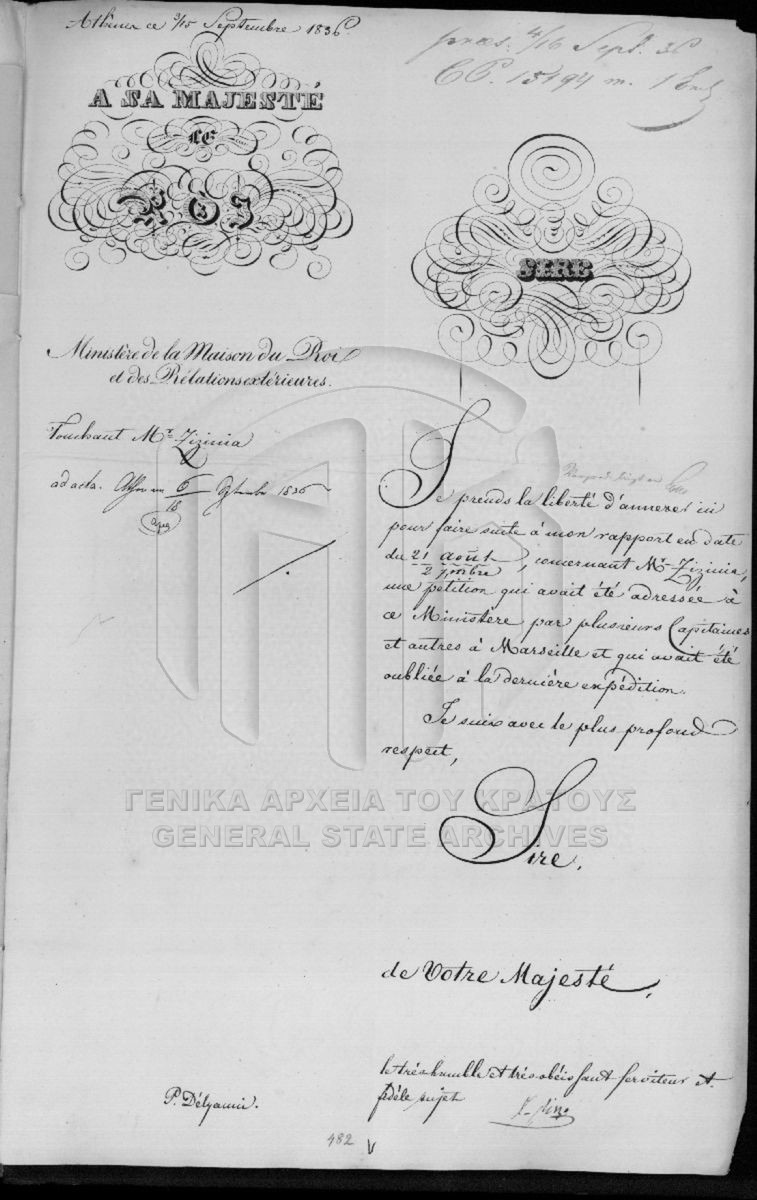 Athènes ce 3/15 Septembre 1836.
A SA MAJESTÉ
LE
ROI
Ministère de la Maison du Roi
et des Rélations extérieures.
Touchant Mr. Zizinia
ad acta. 6/18 1836
praes. 4/16 Sept. 36
15194 m. 1
SIRE
Je prends la liberté d'annexer ici
pour faire suite à mon rapport en date
du 21 août / 2 7mbre, concernant Mr. Zizinia,
une pétition qui avait été adressée à
ce Ministère par plusieurs Capitaines
et autres à Marseille et qui avait été
oubliée à la dernière expédition.
Je suis avec le plus profond
respect,
Sire,
de Votre Majesté,
le très humble et très obéissant serviteur et
fidèle sujet
P. Délyanni.
482
ΓΕΝΙΚΑ ΑΡΧΕΙΑ ΤΟΥ ΚΡΑΤΟΥΣ
GENERAL STATE ARCHIVES